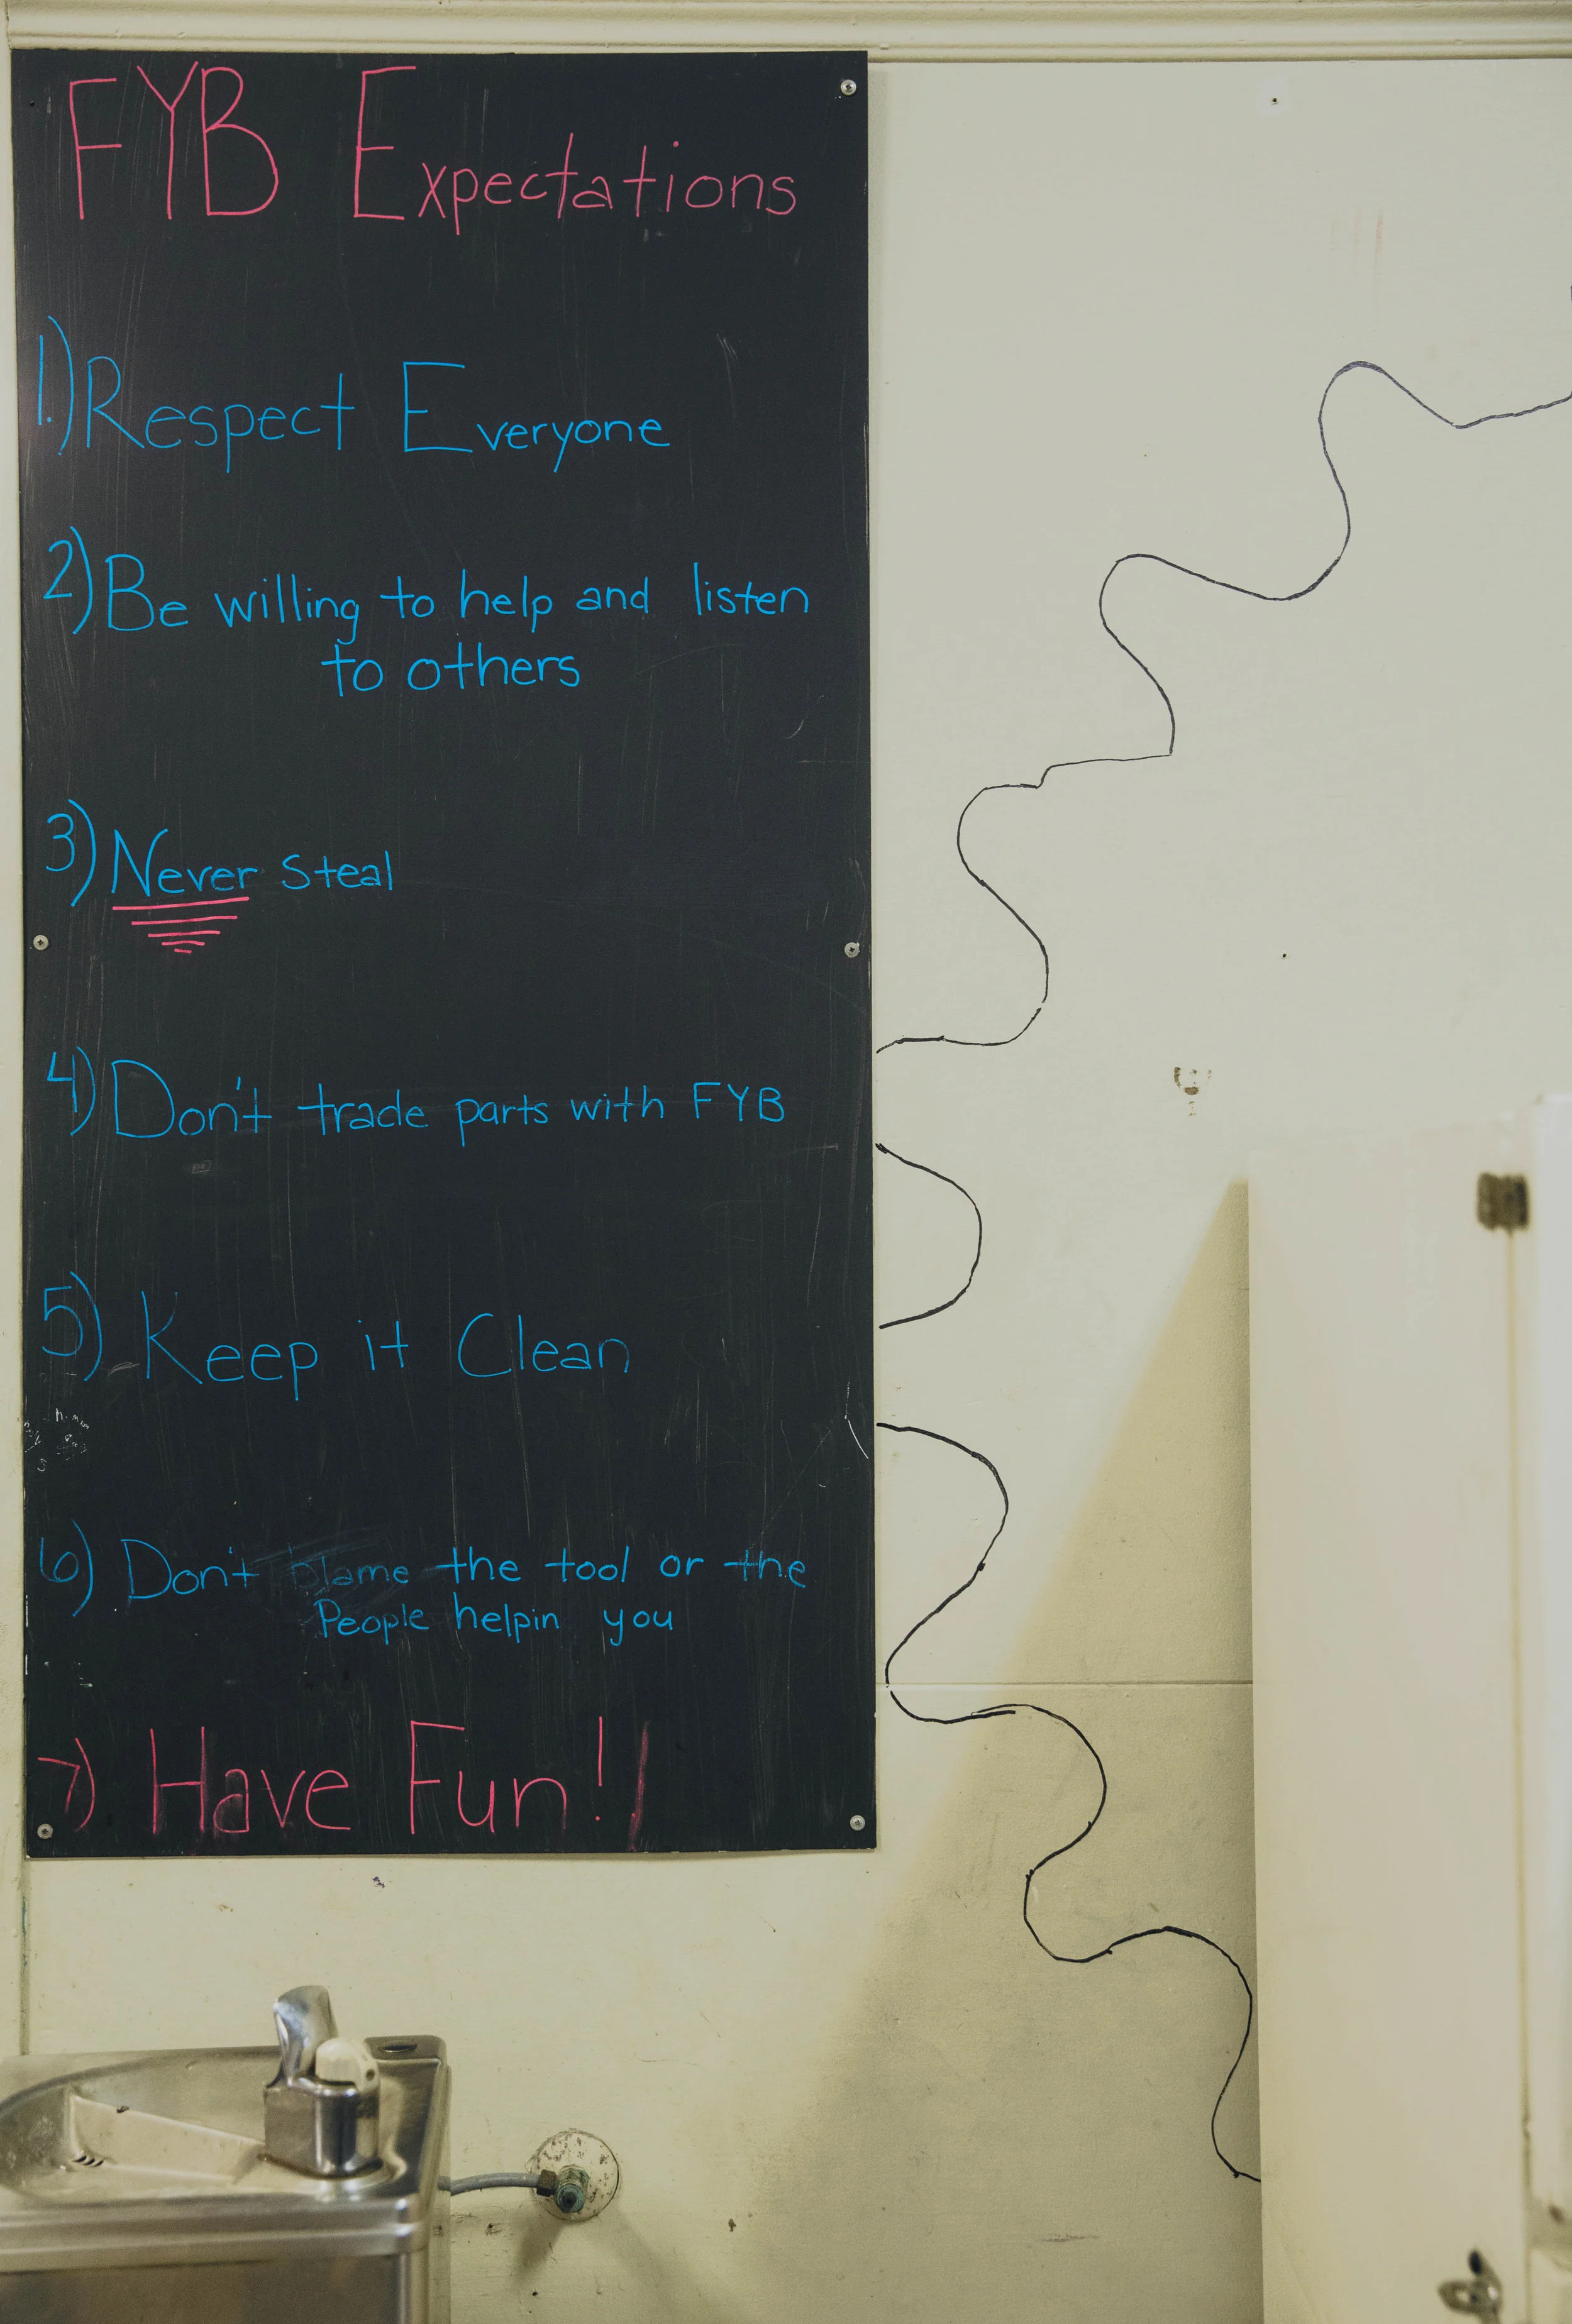 FYB Expectations
1.) Respect Everyone
2) Be willing to help and listen
to others
3) Never Steal
4) Don't trade parts with FYB
5) Keep it Clean
6) Don't blame the tool or the
People helpin you
7) Have Fun!